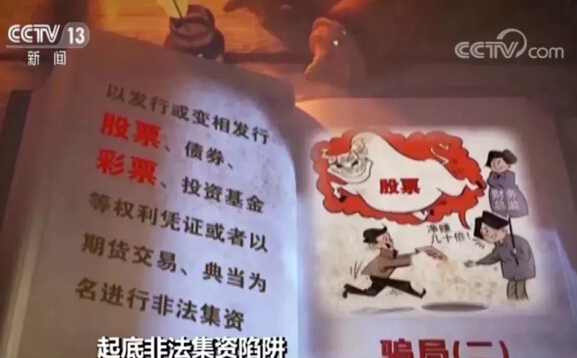 CCTV 13
新闻
CCTV.com
以发行或变相发行
股票、债券、
彩票、投资基金
等权利凭证或者以
期货交易、典当为
名进行非法集资
股票
财务
总监
净赚
几十倍!
骗局(二)
起底非法集资陷阱